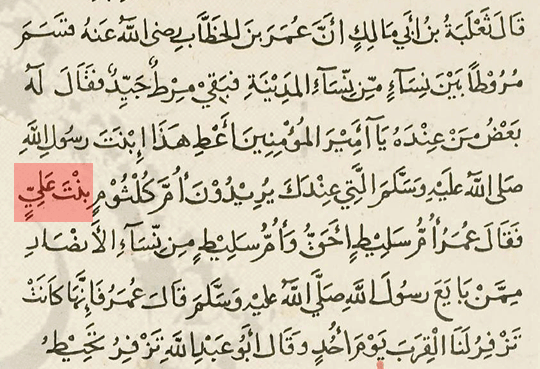 قَالَ ثَعْلَبَةُ بْنُ أَبِي مَالِكٍ أَنَّ عُمَرَ بْنَ الخَطَّابِ رضى اللّٰهُ عَنْهُ قَسَمَ
مُرُوْطًا بَيْنَ نِسَآءٍ مِّنْ نِّسَآءِ المَدِيْنَةِ فَبَقِيَ مِرْطٌ جَيِّدٌ فَقَالَ لَهُ
بَعْضُ مَنْ عِنْدَهُ يَآ أَمِيْرَ المُؤْمِنِيْنَ أَعْطِ هٰذَا اِبْنَتَ رسولِ اللّٰهِ
صَلَى اللّٰهُ عَلَيْهِ وَسَلَّمَ الَّتِي عِنْدَكَ يُرِيْدُوْنَ أُمَّ كُلْثُوْمٍ بِنْتَ عَلِيٍّ
فَقَالَ عُمَرُ أُمُّ سَلِيْطٍ أَحَقُّ وَأُمُّ سَلِيْطٍ مِن نِّسَآءِ الأَنْصَارِ
مِمَّنْ بَايَعَ رسولَ اللّٰهِ صَلَّى اللّٰهُ عليهِ وَسَلَّمَ قَالَ عُمَرُ فَإِنَّهَا كَانَتْ
تَزْفِرُ لَنَا الْقِرَبَ يَوْمَ أُحُدٍ وَقَالَ أَبُو عَبْدِ اللّٰهِ تَزْفِرُ تَخِيْطُ